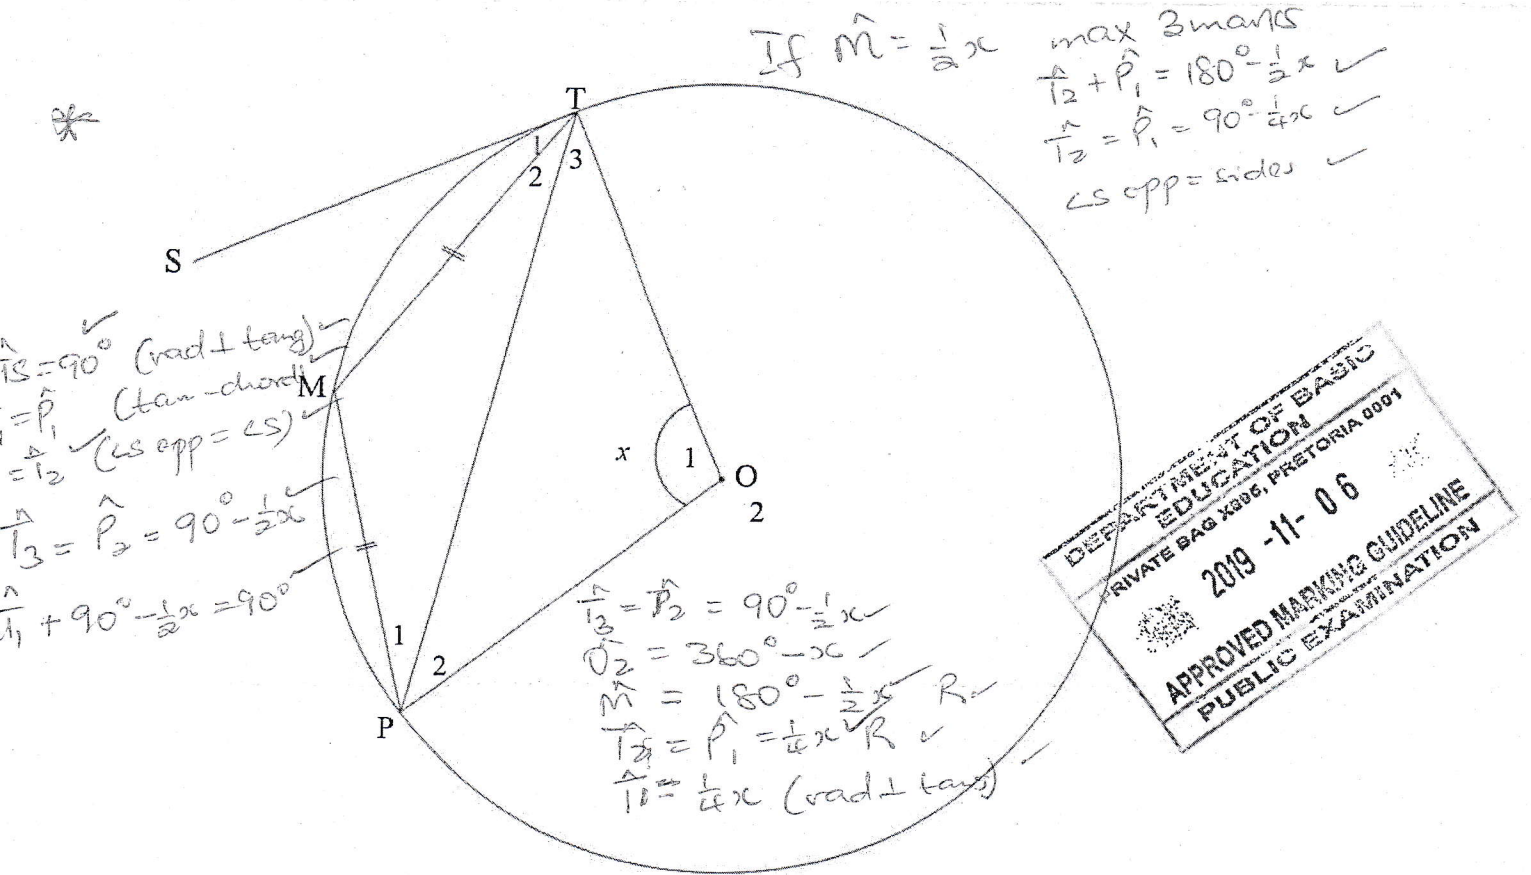 If M̂ = ½x max 3 marks
T̂₂ + P̂₁ = 180° - ½x ✓
T̂₂ = P̂₁ = 90° - ¼x ✓
<s opp = sides ✓
T
1
2
3
S
T̂S = 90° ✓ (rad ⊥ tang) ✓
₁ = P̂₁ (tan-chord) ✓
M
= T̂₂ ✓ (<s opp = <s) ✓
T̂₃ = P̂₂ = 90° - ½x ✓
T̂₁ + 90° - ½x = 90° ✓
x
1
O
2
1
2
P
T̂₃ = P̂₂ = 90° - ½x ✓
Ô₂ = 360° - x ✓
M̂ = 180° - ½x ✓ R ✓
T̂₂ = P̂₁ = ¼x ✓ R ✓
T̂₁ = ¼x (rad ⊥ tang) ✓
DEPARTMENT OF BASIC
EDUCATION
PRIVATE BAG X895, PRETORIA 0001
2019 -11- 06
APPROVED MARKING GUIDELINE
PUBLIC EXAMINATION